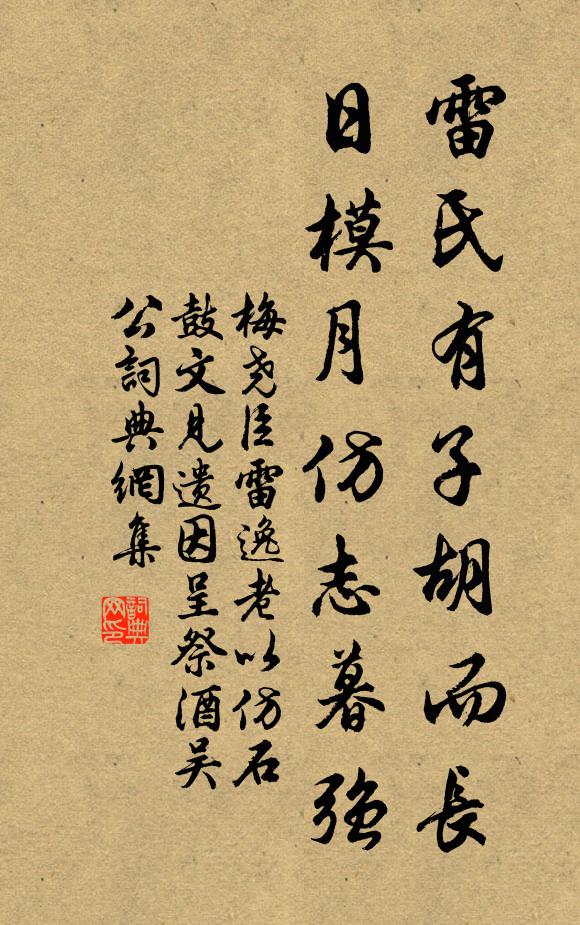 雷氏有子胡而長
日模月仿志暮强
梅尧臣雷逸老以仿石
鼓文見遺因呈祭酒吴
公詞典網集
詞典
网印